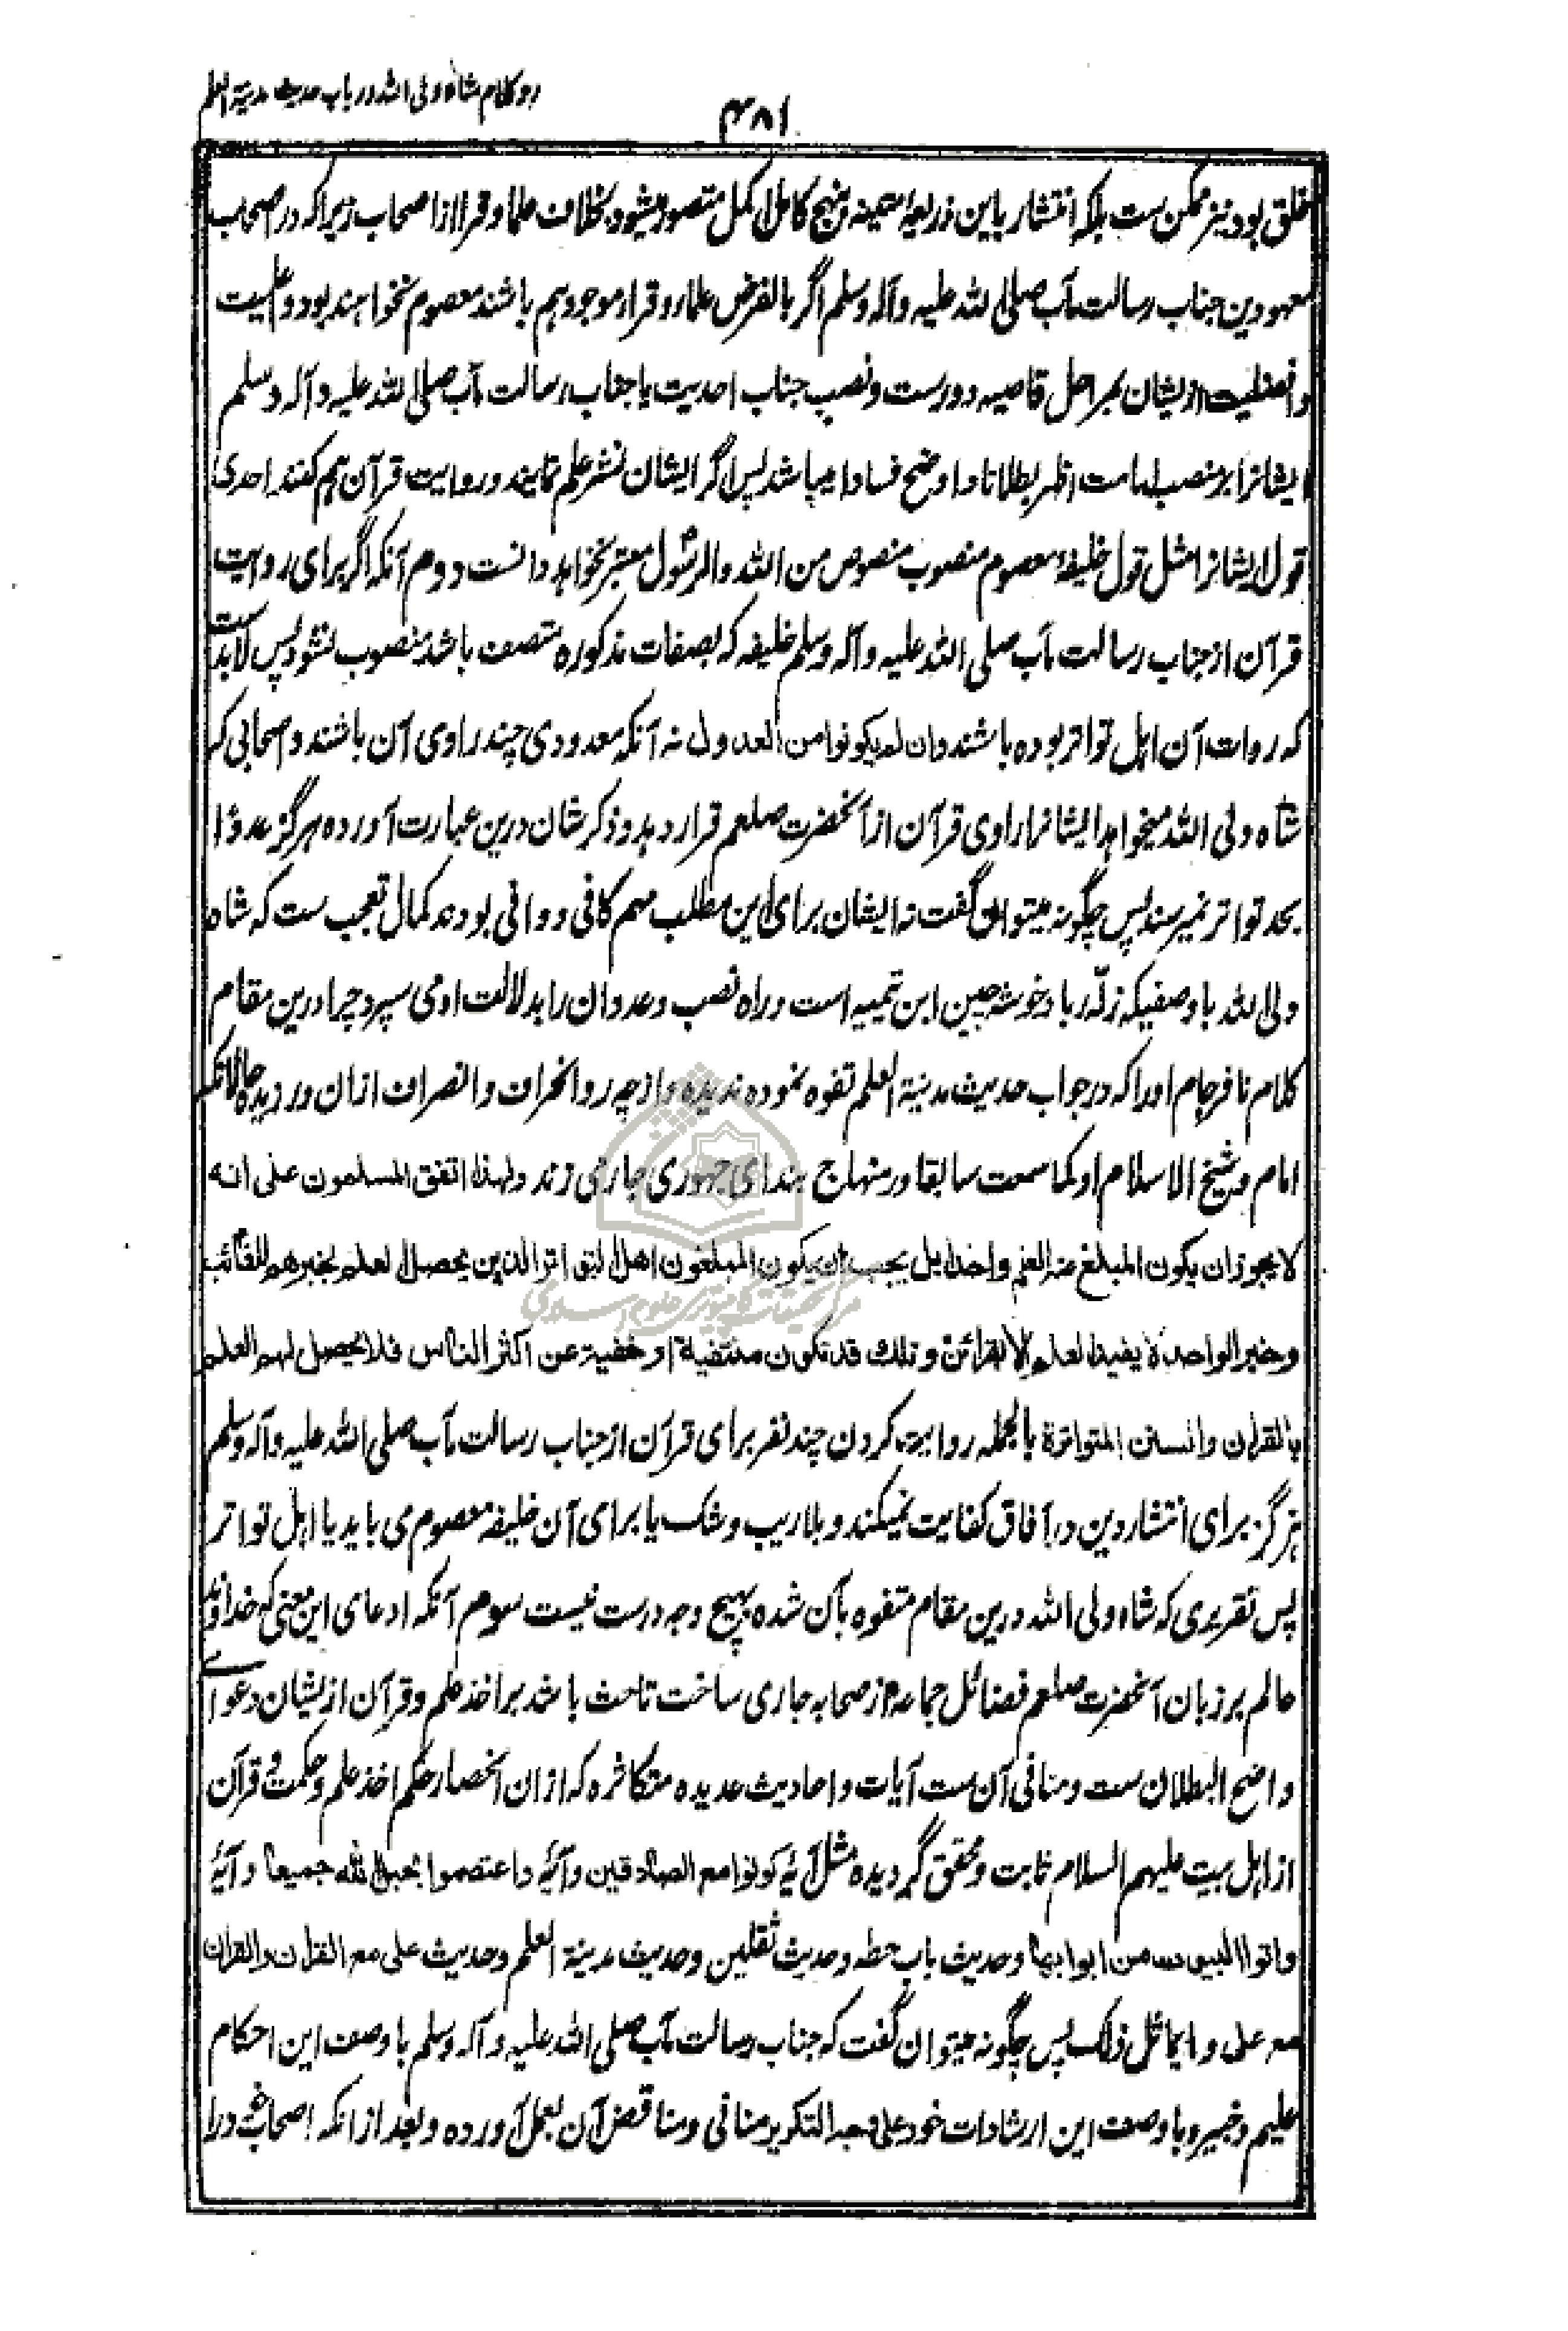 رد کلام شاه ولی الله در باب حدیث مدینة العلم
۴۸۱
خلق بود نیز ممکن ست بلکه انتشار باین ذریعه بر نهج کامل اکمل متصور میشود بخلاف علما و قرا از اصحاب زیرا که در اصحاب
معهودین جناب رسالت مآب صلی الله علیه وآله وسلم اگر بالفرض علما و قرا موجود هم باشند معصوم نخواهند بود و اعلمیت
و افضلیت از یشان بمراحل قاصیه دورست و نصب جناب احدیت یا جناب رسالت مآب صلی الله علیه وآله وسلم
ایشانرا بر منصب امامت اظهر بطلانا و اوضح فسادا میباشد پس اگر ایشان نشر علم نمایند و روایت قرآن هم کنند احدی
قول ایشانرا مثل قول خلیفهٔ معصوم منصوب منصوص من الله والرسول معتبر نخواهد دانست دوم آنکه اگر برای روایت
قرآن از جناب رسالت مآب صلی الله علیه وآله وسلم خلیفه که بصفات مذکوره متصف باشد منصوب نشود پس لابدست
که روات آن اهل تواتر بوده باشند وان لم یکونوا من العدول نه آنکه معدودی چند راوی آن باشند و اصحابی که
شاه ولی الله میخواهد ایشانرا راوی قرآن از آنحضرت صلعم قرار دهد و ذکر شان درین عبارت آورده هرگز عددا
بحد تواتر نمیرسند پس چگونه میتوان گفت که ایشان برای این مطلب مهم کافی و وافی بودند کمال تعجب ست که شاه
ولی الله با وصفیکه زلّه ربا و خوشه چین ابن تیمیه است و راه نصب و عدوان را بدلالت او می سپرد چرا درین مقام
کلام نافرجام او را که در جواب حدیث مدینة العلم تفوه نموده ندیده و از چه رو انحراف و انصراف ازان ورزیده حالانکه
امام و شیخ الاسلام او کما سمعت سابقا در منهاج بندای جهوری جار می زند ولهذا اتفق المسلمون علی انه
لا یجوز ان یکون المبلغ عنه العلم واحدا بل یجب ان یکون المبلغون اهل التواتر الذین یحصل العلم بخبرهم للغائب
وخبر الواحد لا یفید العلم الا بقرائن وتلک قد تکون منتفیة او خفیة عن اکثر الناس فلا یحصل لهم العلم
بالقرآن والسنن المتواترة بالجمله روایت کردن چند نفر برای قرآن از جناب رسالت مآب صلی الله علیه وآله وسلم
هرگز برای انتشار دین در آفاق کفایت نمیکند و بلا ریب و شک یا برای آن خلیفه معصوم می باید یا اهل تواتر
پس تقریری که شاه ولی الله درین مقام متفوه بآن شده بهیچ وجه درست نیست سوم آنکه ادعای این معنی که خداوند
عالم بر زبان آنحضرت صلعم فضائل جماعه از صحابه جاری ساخت تا حث باشد بر اخذ علم و قرآن از یشان دعوای
واضح البطلان ست و منافی آن ست آیات و احادیث عدیده متکاثره که ازان انحصار حکم اخذ علم و حکمت و قرآن
از اهل بیت علیهم السلام ثابت و محقق گردیده مثل آیهٔ کونوا مع الصادقین و آیهٔ واعتصموا بحبل الله جمیعا و آیهٔ
واتوا البیوت من ابوابها و حدیث باب حطه و حدیث ثقلین و حدیث مدینة العلم و حدیث علی مع القرآن والقرآن
مع علی و ما یماثل ذلک پس چگونه میتوان گفت که جناب رسالت مآب صلی الله علیه وآله وسلم با وصف این احکام
علیم و خبیر و با وصف این ارشادات خود علی وجه التکریر منافی و مناقض آن بعمل آورده و بعد ازانکه اصحاب خود را
مرکز تحقیقات کامپیوتری علوم اسلامی